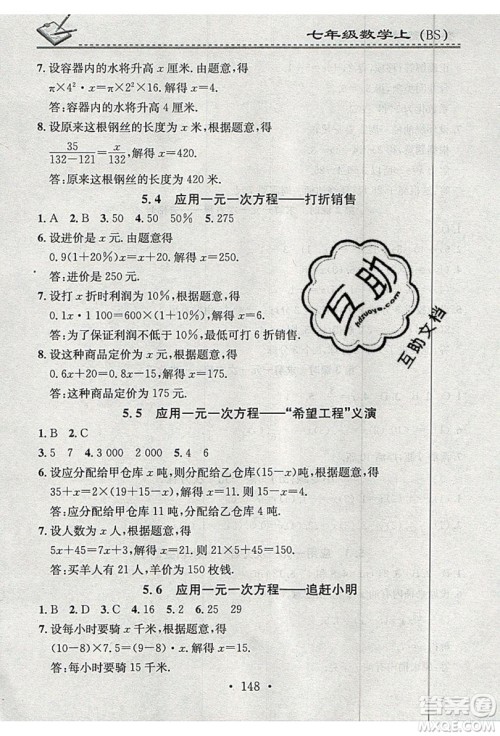 七年级数学上(BS)
7. 设容器内的水将升高 x 厘米. 由题意,得
π×4²·x=π×2²(16+x), 解得 x=
答:容器内的水将升高 厘米.
8. 设原来这根钢丝的长度为 x 米,根据题意,得
35/(132-121)=x/132, 解得 x=420.
答:原来这根钢丝的长度为 420 米.
5.4 应用一元一次方程——打折销售
1. A 2. B 3. 50 4. 50% 5. 275
6. 设进价是 x 元. 由题意,得
0.9(1+20%)x=x+20. 解得 x=250.
答:进价是 250 元.
7. 设打 x 折时利润为 10%,根据题意,得
0.1x·1100=600×(1+10%). 解得 x=6.
答:为了保证利润不低于 10%,最多打 6 折.
8. 设这种商品定价为 x 元,根据题意,得
0.6x+20=0.8x-15. 解得 x=175.
答:这种商品定价为 175 元.
5.5 应用一元一次方程——“希望工程”义演
1. B 2. C
3. 5 7 4. 3 000 2 000 5. 2
6. 设应分配给甲仓库 x 吨,则分配给乙仓库(15-x)吨,根据题意,得
35+x=2×[19+(15-x)]. 解得 x=11. 15-x=4.
答:应分配给甲仓库 11 吨,分配给乙仓库 4 吨.
7. 设人数为 x 人,根据题意,得
5x+45=7x+3, 解得 x=21. 5x+45=5×21+45=150.
答:买羊人数为 21 人,羊价为 150 枚钱.
5.6 应用一元一次方程——追赶小明
1. B 2. D 3. C 4. 16 5. 25 29 6. 48
7. 设每小时要骑 x 千米,根据题意,得
(10-8)x=15×(10-8)- 解得 x=
答:每小时要骑 千米.
· 148 ·
互助
hdzuoye.com
互助文档
答案圈
MXQE.COM